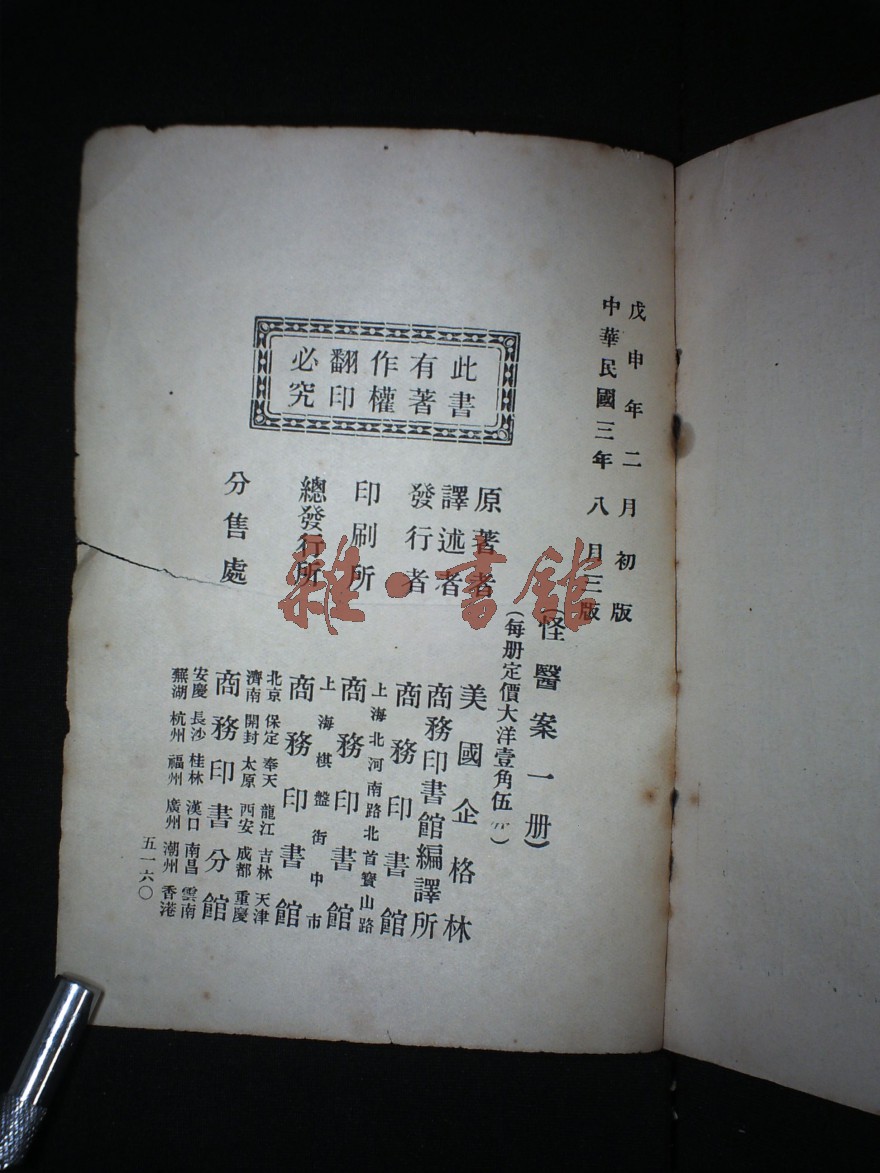 戊申年二月初版
中華民國三年八月三版
(怪醫案一册)
(每册定價大洋壹角伍
此書有著作權翻印必究
原著者 美國企格林
譯述者 商務印書館編譯所
發行者 商務印書館
上海北河南路北首寶山路
印刷所 商務印書館
上海棋盤街中市
總發行所 商務印書館
北京 保定 奉天 龍江 吉林 天津
濟南 開封 太原 西安 成都 重慶
分售處 商務印書分館
安慶 長沙 桂林 漢口 南昌 雲南
蕪湖 杭州 福州 廣州 潮州 香港
五一六〇
雜·書館